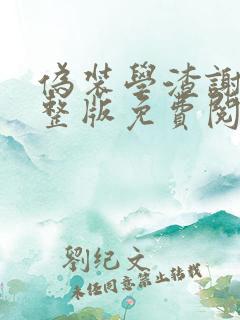 偽裝學渣謝
整版免費閱
劉紀文
未经同意禁止转载